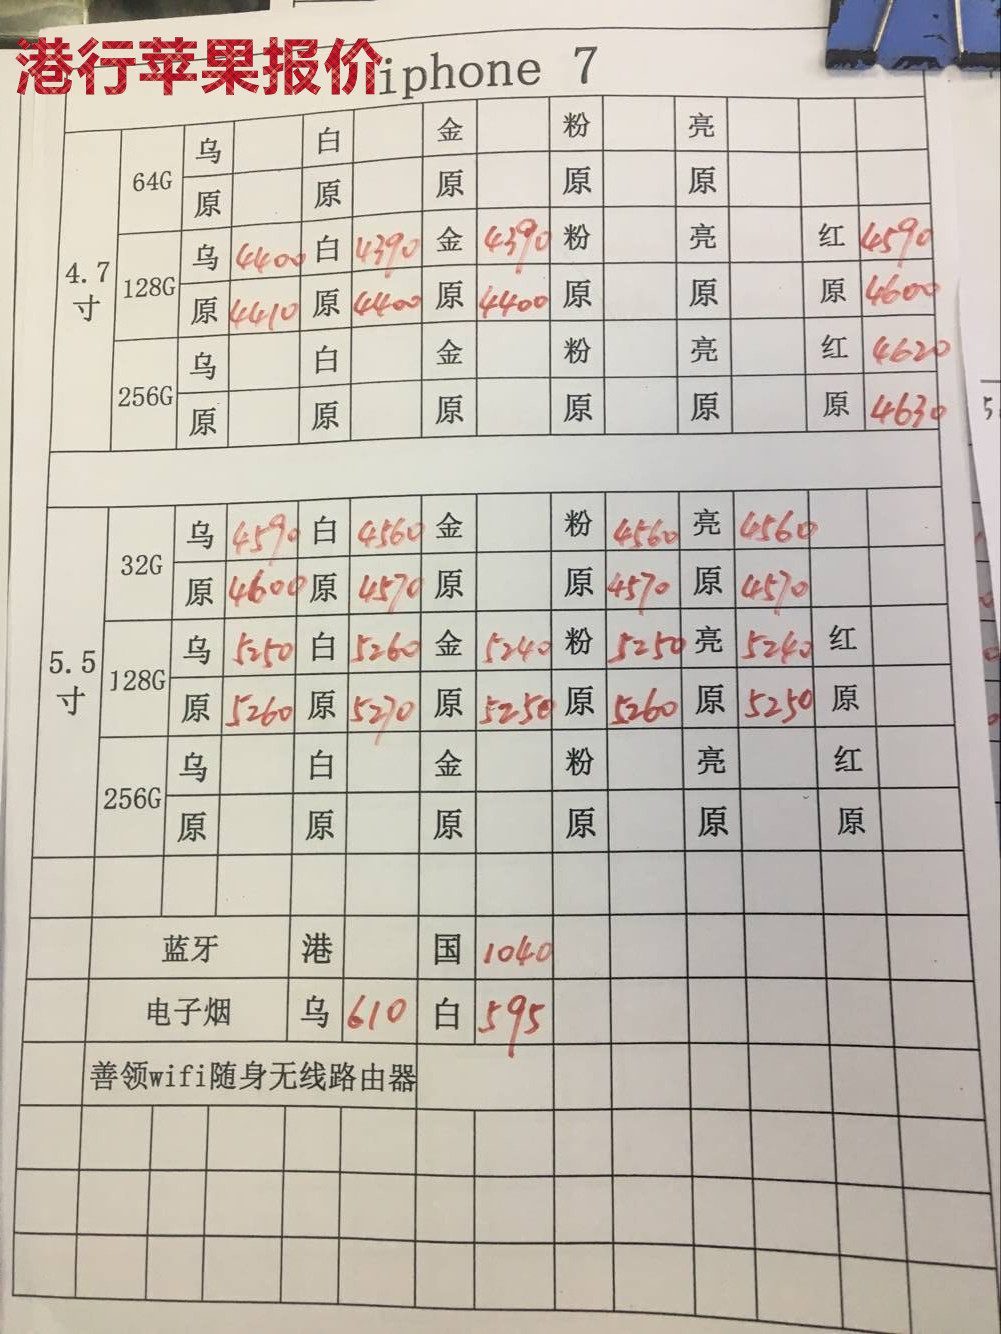 港行苹果报价
iphone 7
4.7寸
64G
乌 白 金 粉 亮
原 原 原 原 原
128G
乌 4400 白 4390 金 4390 粉 亮 红 4590
原 4410 原 4400 原 4400 原 原 原 4600
256G
乌 白 金 粉 亮 红 4620
原 原 原 原 原 原 4630
5.5寸
32G
乌 4590 白 4560 金 粉 4560 亮 4560
原 4600 原 4570 原 原 4570 原 4570
128G
乌 5250 白 5260 金 5240 粉 5250 亮 5240 红
原 5260 原 5270 原 5250 原 5260 原 5250 原
256G
乌 白 金 粉 亮 红
原 原 原 原 原 原
蓝牙 港 国 1040
电子烟 乌 610 白 595
善领wifi随身无线路由器